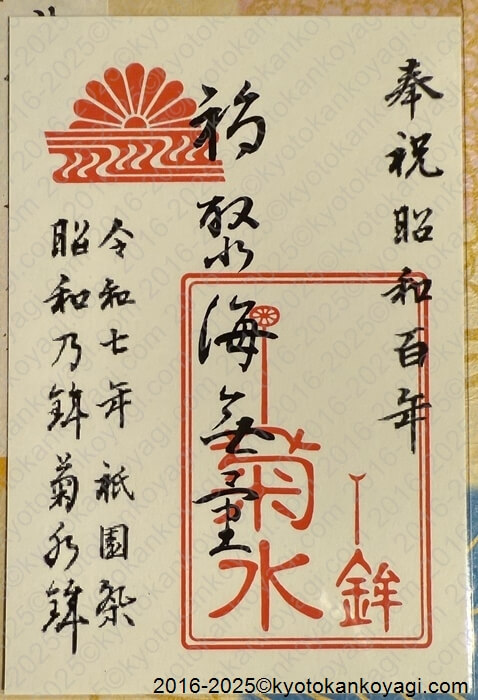 奉祝昭和百年
福聚海無量
菊水
鉾
令和七年 祇園祭
昭和乃鉾菊水鉾
2016-2025©kyotokankoyagi.com